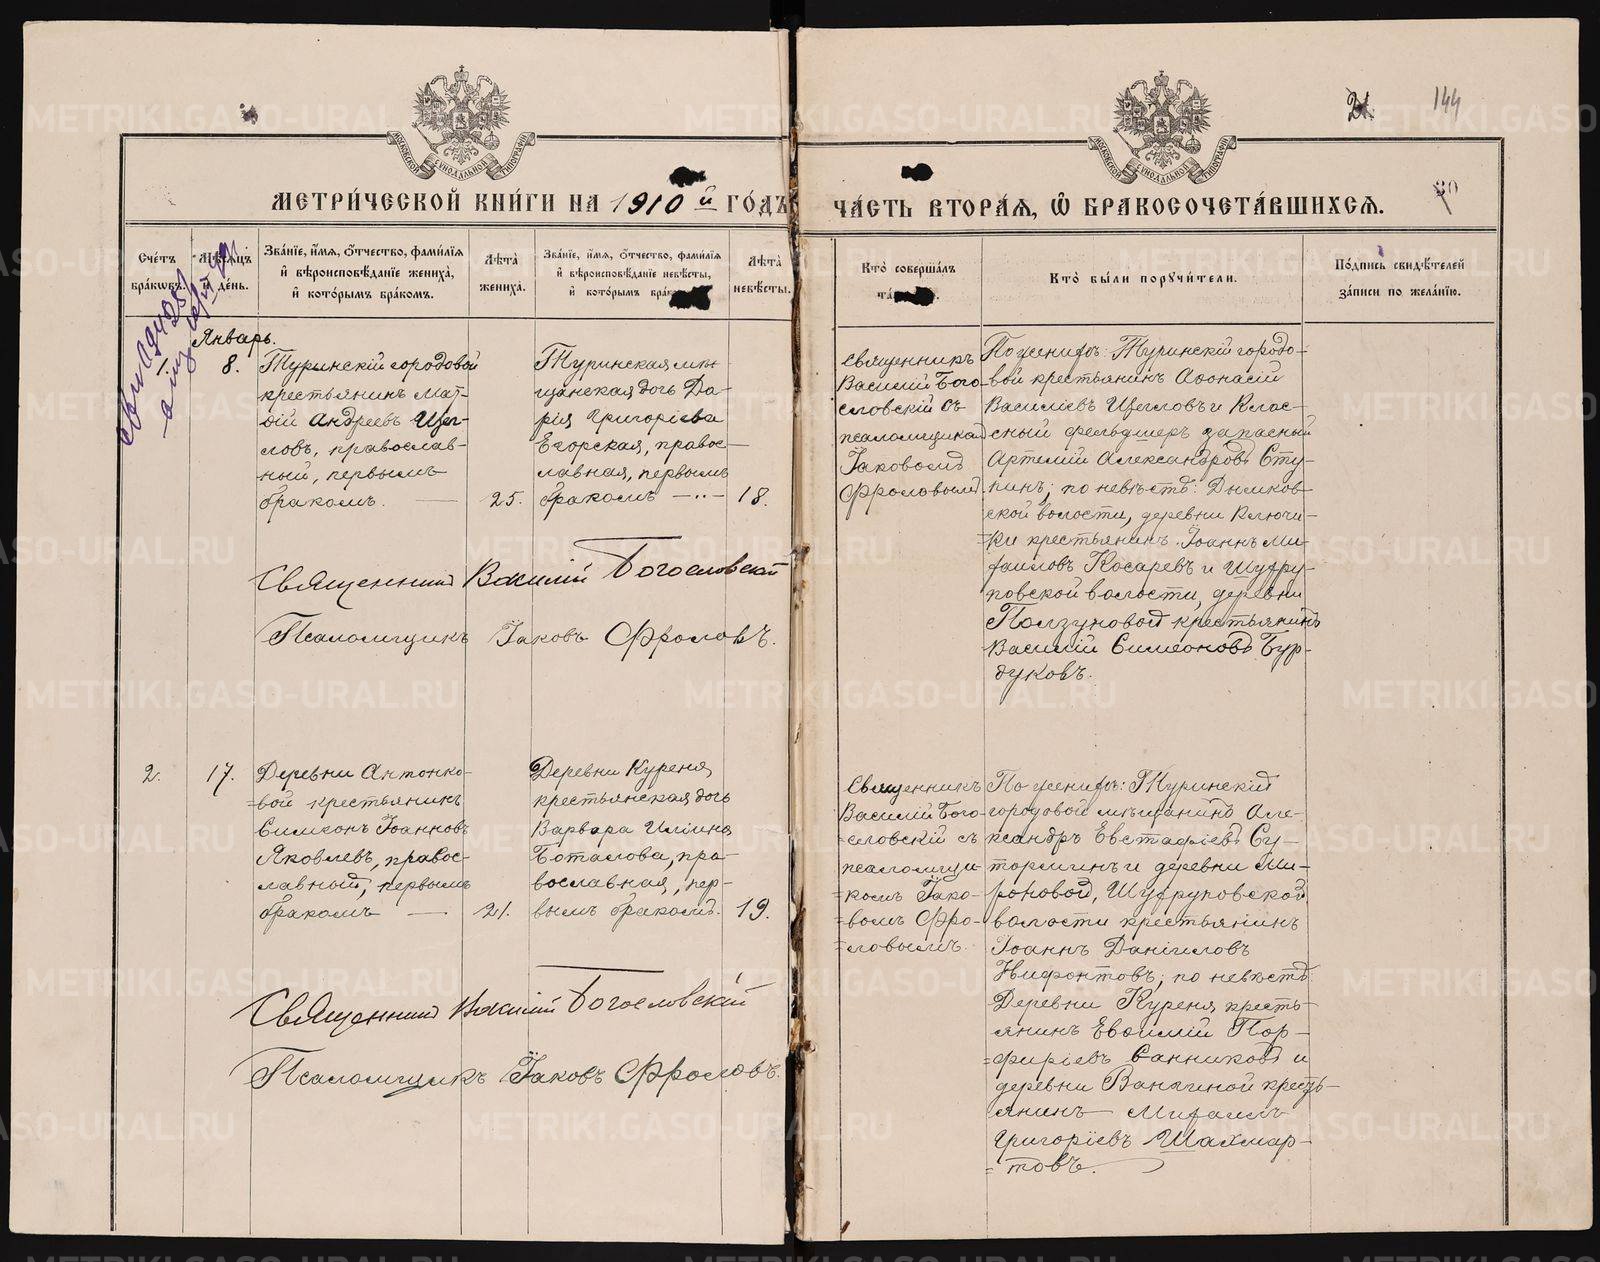 144
МОСКОВСКОЙ СѴНОДАЛЬНОЙ ТИПОГРАФІИ
МОСКОВСКОЙ СѴНОДАЛЬНОЙ ТИПОГРАФІИ
МЕТРИ́ЧЕСКОЙ КНИ́ГИ НА 1910 й ГО́ДЪ
ЧА́СТЬ ВТОРА́Я, Ѡ БРАКОСОЧЕТА́ВШИХСЯ.
Сче́тъ бра́ковъ.
Мѣ́сяцъ и де́нь.
Зва́нїе, и́мя, о́тчество, фами́лїя
и вѣроисповѣ́данїе жениха̀,
и кото́рымъ бра́комъ.
Лѣ́та̀
жениха̀.
Зва́нїе, и́мя, о́тчество, фами́лїя
и вѣроисповѣ́данїе невѣ́сты,
и кото́рымъ
Лѣ́та̀
невѣ́сты.
Кто̀ соверша́лъ
Кто̀ бы́ли поручи́тели.
По́дпись свидѣ́телей
за́писи по жела́нїю.
Январь.
1.
8.
Туринскій городовой
крестьянинъ Мат-
ѳій Андреевъ Щег-
ловъ, православ-
ный, первымъ
бракомъ. —
25.
Туринская мѣ-
щанская дочь Да-
рія Григоріева
Егорская, право-
славная, первымъ
бракомъ —..—
18.
Священникъ
Василій Бого-
словскій съ
псаломщикомъ
Іаковомъ
Фроловымъ.
По женихѣ: Туринскій городо-
вой крестьянинъ Аѳонасій
Василіевъ Щегловъ и Клас-
сный фельдшеръ запасный
Артемій Александровъ Сту-
пинъ; по невѣстѣ: Дымков-
ской волости, деревни Ключи-
ки крестьянинъ Іоаннъ Ми-
хаиловъ Косаревъ и Шухру-
повской волости, деревни
Ползуновой крестьянинъ
Василій Симеоновъ Бур-
дуковъ.
Священникъ Василій Богословскій
Псаломщикъ Іаковъ Фроловъ.
2.
17.
Деревни Антонко-
вой крестьянинъ
Симеонъ Іоанновъ
Яковлевъ, правос-
лавный, первымъ
бракомъ —
21.
Деревни Куреня,
крестьянская дочь
Варвара Иліина
Боталова, пра-
вославная, пер-
вымъ бракомъ.
19.
Священникъ
Василій Бого-
словскій съ
псаломщи-
комъ Іако-
вомъ Фро-
ловымъ.
По женихѣ: Туринскій
городовой мѣщанинъ Але-
ксандръ Евстафіевъ Су-
тормин и деревни Ми-
роновой, Шухруповской
волости крестьянинъ
Іоаннъ Даніиловъ
Нифонтовъ; по невѣстѣ:
Деревни Куреня, кресть-
янинъ Евѳимій Пор-
фиріевъ Санниковъ и
деревни Ваничной кресть-
янинъ Михаилъ
Григоріевъ Шахмар-
товъ.
Священникъ Василій Богословскій
Псаломщикъ Іаковъ Фроловъ.
METRIKI.GASO-URAL.RU